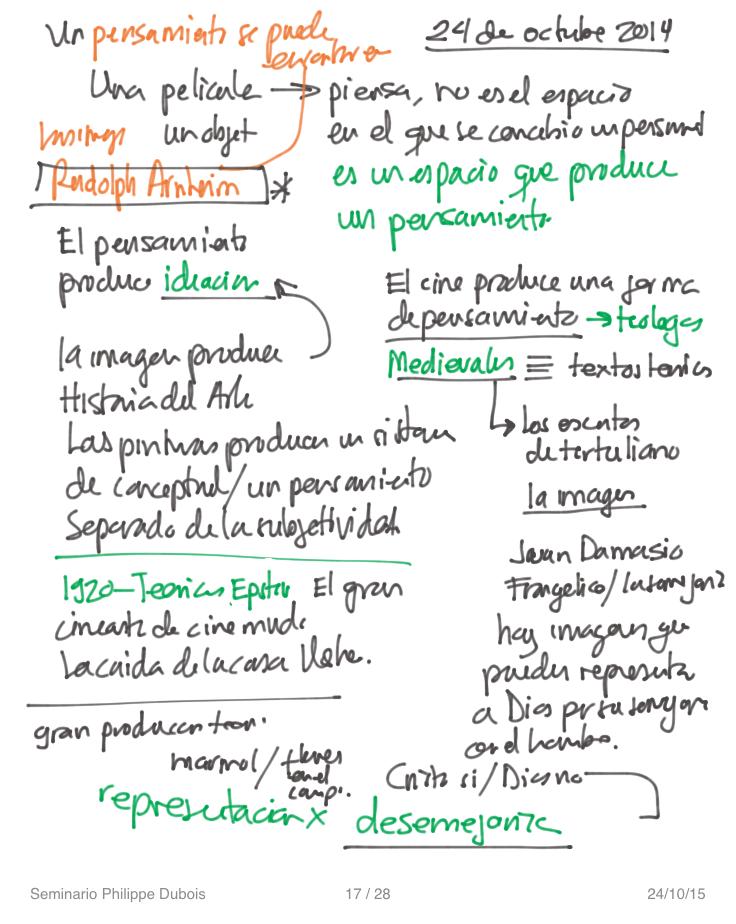 24 de octubre 2014
Un pensamiento se puede
encontrar
Una pelicule → piensa, no es el espacio
un objet
en el que se concebio un pensad
es un espacio que produce
un pensamiento
Rudolph Arnheim *
El pensamiento
produce ideacion
la imagen produce
Historia del Arte
Las pinturas producen un sistema
de conceptual / un pensamiento
Separado de la subjetividad
1920 – Teoricos Epstein El gran
cineasta de cine mudo
La caida de la casa Usher.
gran produccen teor.
marmol / flores
en el
camp.
representacion x desemejanza
El cine produce una forma
de pensamiento → teologos
Medievales ≡ textos teorics
Los escritos
de tertuliano
la imagen
Juan Damasio
Frangelico / la semejanza
hay imagen que
pueden representa
a Dios por su semejan
con el hombre.
Cristo si / Dios no
Seminario Philippe Dubois
17 / 28
24/10/15